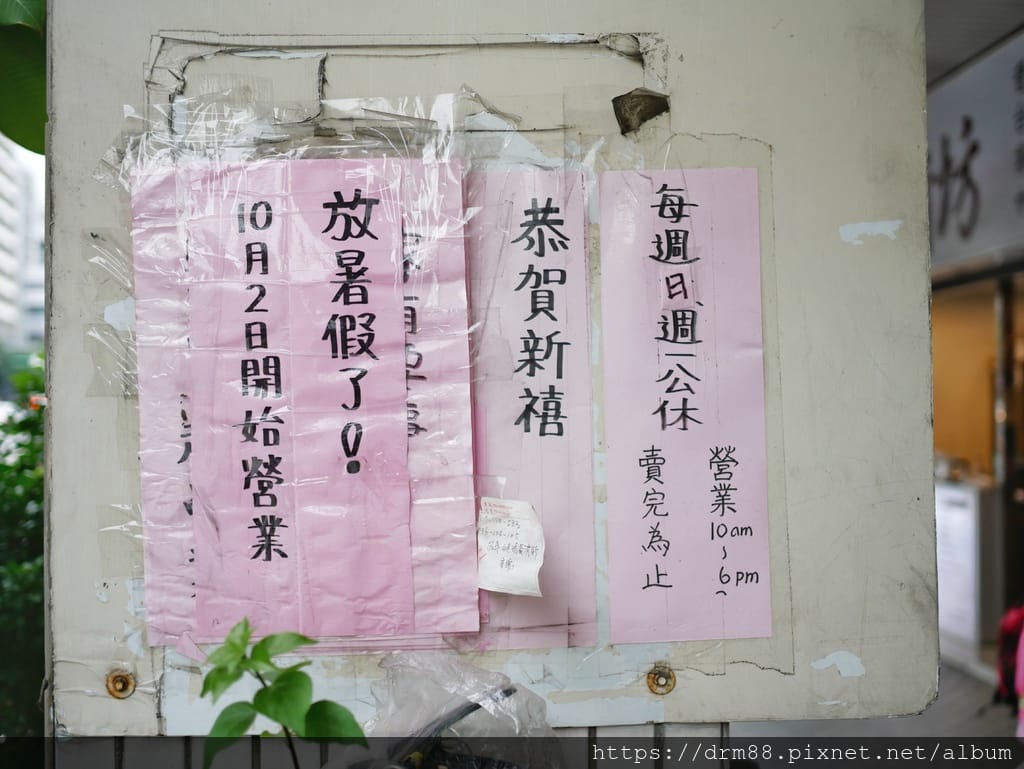 每週日、週一公休
營業10am~6pm
賣完為止
恭賀新禧
放暑假了!
10月2日開始營業
坊
https://drm88.pixnet.net/album